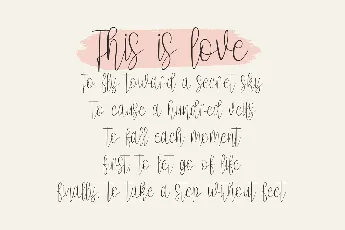 This is love
to fly toward a secret sky
to cause a hundred veils
to fall each moment
first, to let go of life
finally, to take a step without feet